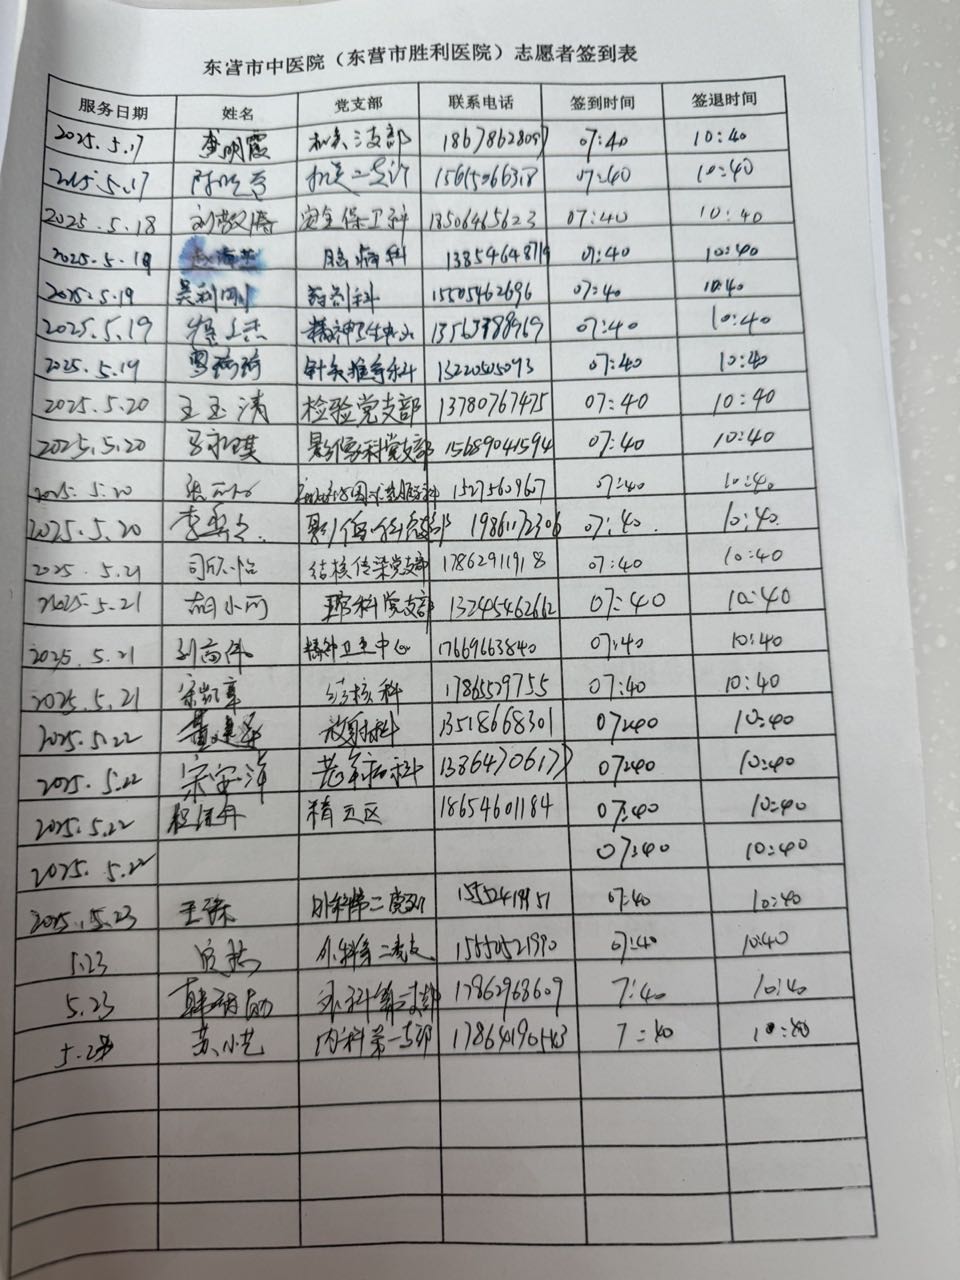 东营市中医院（东营市胜利医院）志愿者签到表
服务日期 姓名 党支部 联系电话 签到时间 签退时间
2025.5.17 李明霞 机关三支部 18678628097 07:40 10:40
2025.5.17 机关二支部 07:40 10:40
2025.5.18 刘敬涛 安全保卫科 13506465623 07:40 10:40
2025.5.19 脑病科 07:40 10:40
2025.5.19 吴利刚 药剂科 15505462696 07:40 10:40
2025.5.19 精神卫生中心 07:40 10:40
2025.5.19 针灸推拿科 07:40 10:40
2025.5.20 王玉涛 检验党支部 13780767475 07:40 10:40
2025.5.20 影像科党支部 15689041594 07:40 10:40
2025.5.20 1527560967 07:40 10:40
2025.5.20 影像科党支部 07:40 10:40
2025.5.21 司欣怡 结核传染党支部 17862911918 07:40 10:40
2025.5.21 胡小河 党支部 13245462662 07:40 10:40
2025.5.21 刘高伟 精神卫生中心 17669663840 07:40 10:40
2025.5.21 宋凯章 结核科 17865529755 07:40 10:40
2025.5.22 放射科 13518668301 07:40 10:40
2025.5.22 宋安萍 老年病科 13864706177 07:40 10:40
2025.5.22 程佳丹 精五区 18654601184 07:40 10:40
2025.5.22 07:40 10:40
2025.5.23 外科第二党支部 07:40 10:40
5.23 外科第二党支 15550521990 07:40 10:40
5.23 外科第二支部 17862968609 7:40 10:40
苏小艺 内科第一支部 7:40 10:40